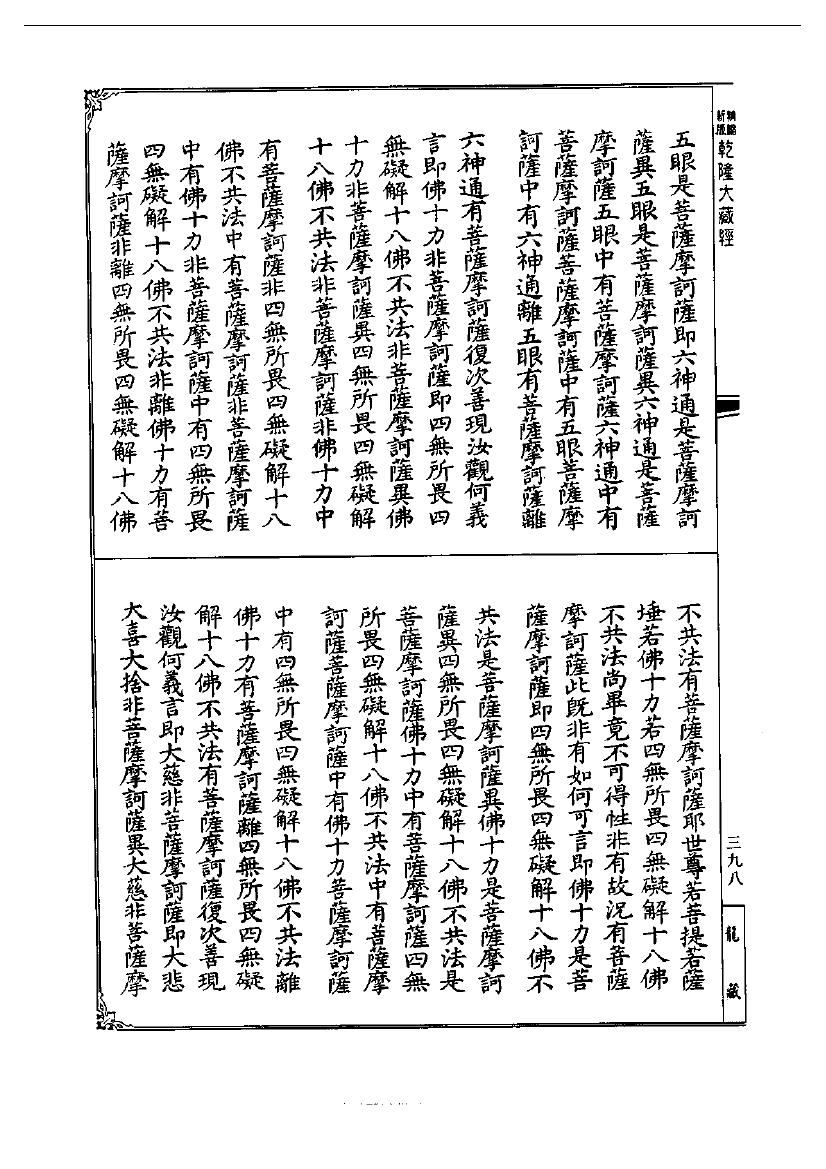 新版
精縮
乾隆大藏經
五眼是菩薩摩訶薩即六神通是菩薩摩訶
薩異五眼是菩薩摩訶薩異六神通是菩薩
摩訶薩五眼中有菩薩摩訶薩六神通中有
菩薩摩訶薩菩薩摩訶薩中有五眼菩薩摩
訶薩中有六神通離五眼有菩薩摩訶薩離
六神通有菩薩摩訶薩復次善現汝觀何義
言即佛十力非菩薩摩訶薩即四無所畏四
無礙解十八佛不共法非菩薩摩訶薩異佛
十力非菩薩摩訶薩異四無所畏四無礙解
十八佛不共法非菩薩摩訶薩非佛十力中
有菩薩摩訶薩非四無所畏四無礙解十八
佛不共法中有菩薩摩訶薩非菩薩摩訶薩
中有佛十力非菩薩摩訶薩中有四無所畏
四無礙解十八佛不共法非離佛十力有菩
薩摩訶薩非離四無所畏四無礙解十八佛
不共法有菩薩摩訶薩耶世尊若菩提若薩
埵若佛十力若四無所畏四無礙解十八佛
不共法尚畢竟不可得性非有故況有菩薩
摩訶薩此既非有如何可言即佛十力是菩
薩摩訶薩即四無所畏四無礙解十八佛不
共法是菩薩摩訶薩異佛十力是菩薩摩訶
薩異四無所畏四無礙解十八佛不共法是
菩薩摩訶薩佛十力中有菩薩摩訶薩四無
所畏四無礙解十八佛不共法中有菩薩摩
訶薩菩薩摩訶薩中有佛十力菩薩摩訶薩
中有四無所畏四無礙解十八佛不共法離
佛十力有菩薩摩訶薩離四無所畏四無礙
解十八佛不共法有菩薩摩訶薩復次善現
汝觀何義言即大慈非菩薩摩訶薩即大悲
大喜大捨非菩薩摩訶薩異大慈非菩薩摩
三九八
龍藏